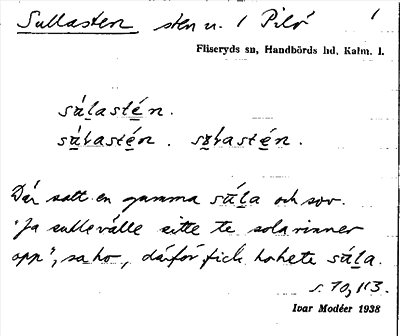 Sullasten sten u. 1 Pilö 1
Fliseryds sn, Handbörds hd, Kalm. l.
sálastén.
sálastén. sɵlastén.
Där satt en gamma sála och sov.
"Ja sulle välle sitte te sola rinner
opp", sa ho, därför fick ho hete sála.
s. 70, 113.
Ivar Modéer 1938